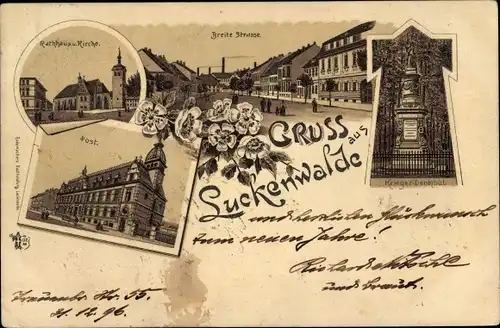 Rathhaus u. Kirche.
Breite Strasse.
Post.
Krieger-Denkmal.
GRUSS aus
Luckenwalde
und herzlichen Glückwunsch
zum neuen Jahre!
und Braut.
55.
31.12.96.